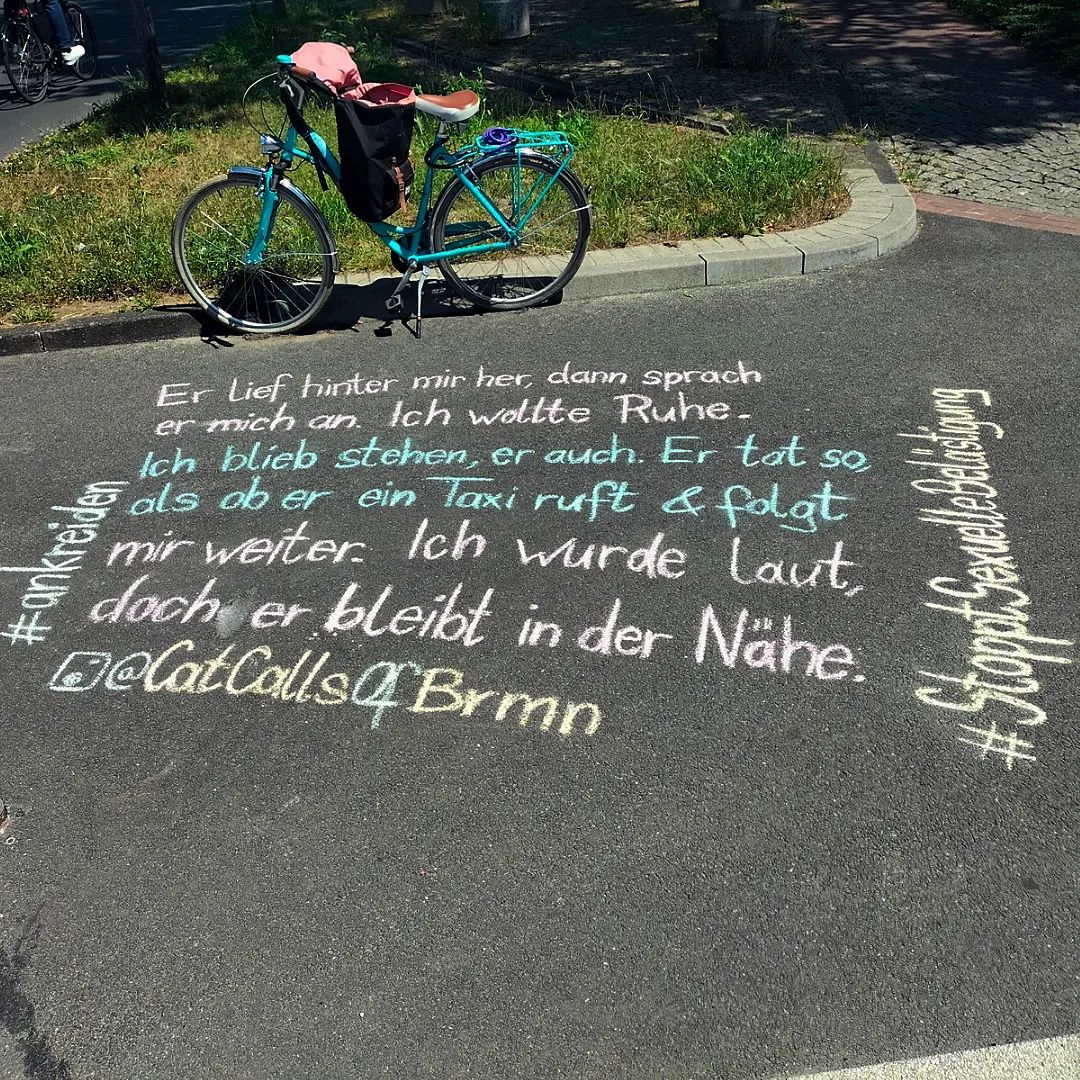 Er lief hinter mir her, dann sprach
er mich an. Ich wollte Ruhe.
Ich blieb stehen, er auch. Er tat so,
als ob er ein Taxi ruft & folgt
mir weiter. Ich wurde laut,
doch er bleibt in der Nähe.
@CatCallsOfBrmn
#ankreiden
#StopptSexuelleBelästigung